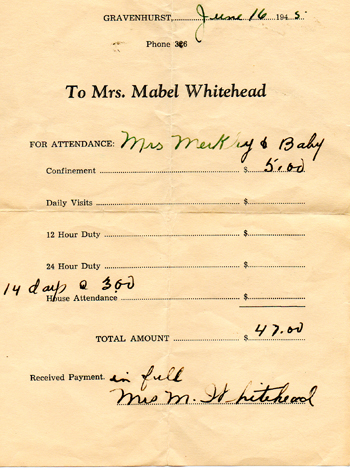 GRAVENHURST, June 16 1945.
Phone 386
To Mrs. Mabel Whitehead
FOR ATTENDANCE: Mrs Merkley & Baby
Confinement $ 5.00
Daily Visits $
12 Hour Duty $
24 Hour Duty $
14 days @ 3.00
House Attendance $
TOTAL AMOUNT $ 47.00
Received Payment. in full
Mrs M. Whitehead